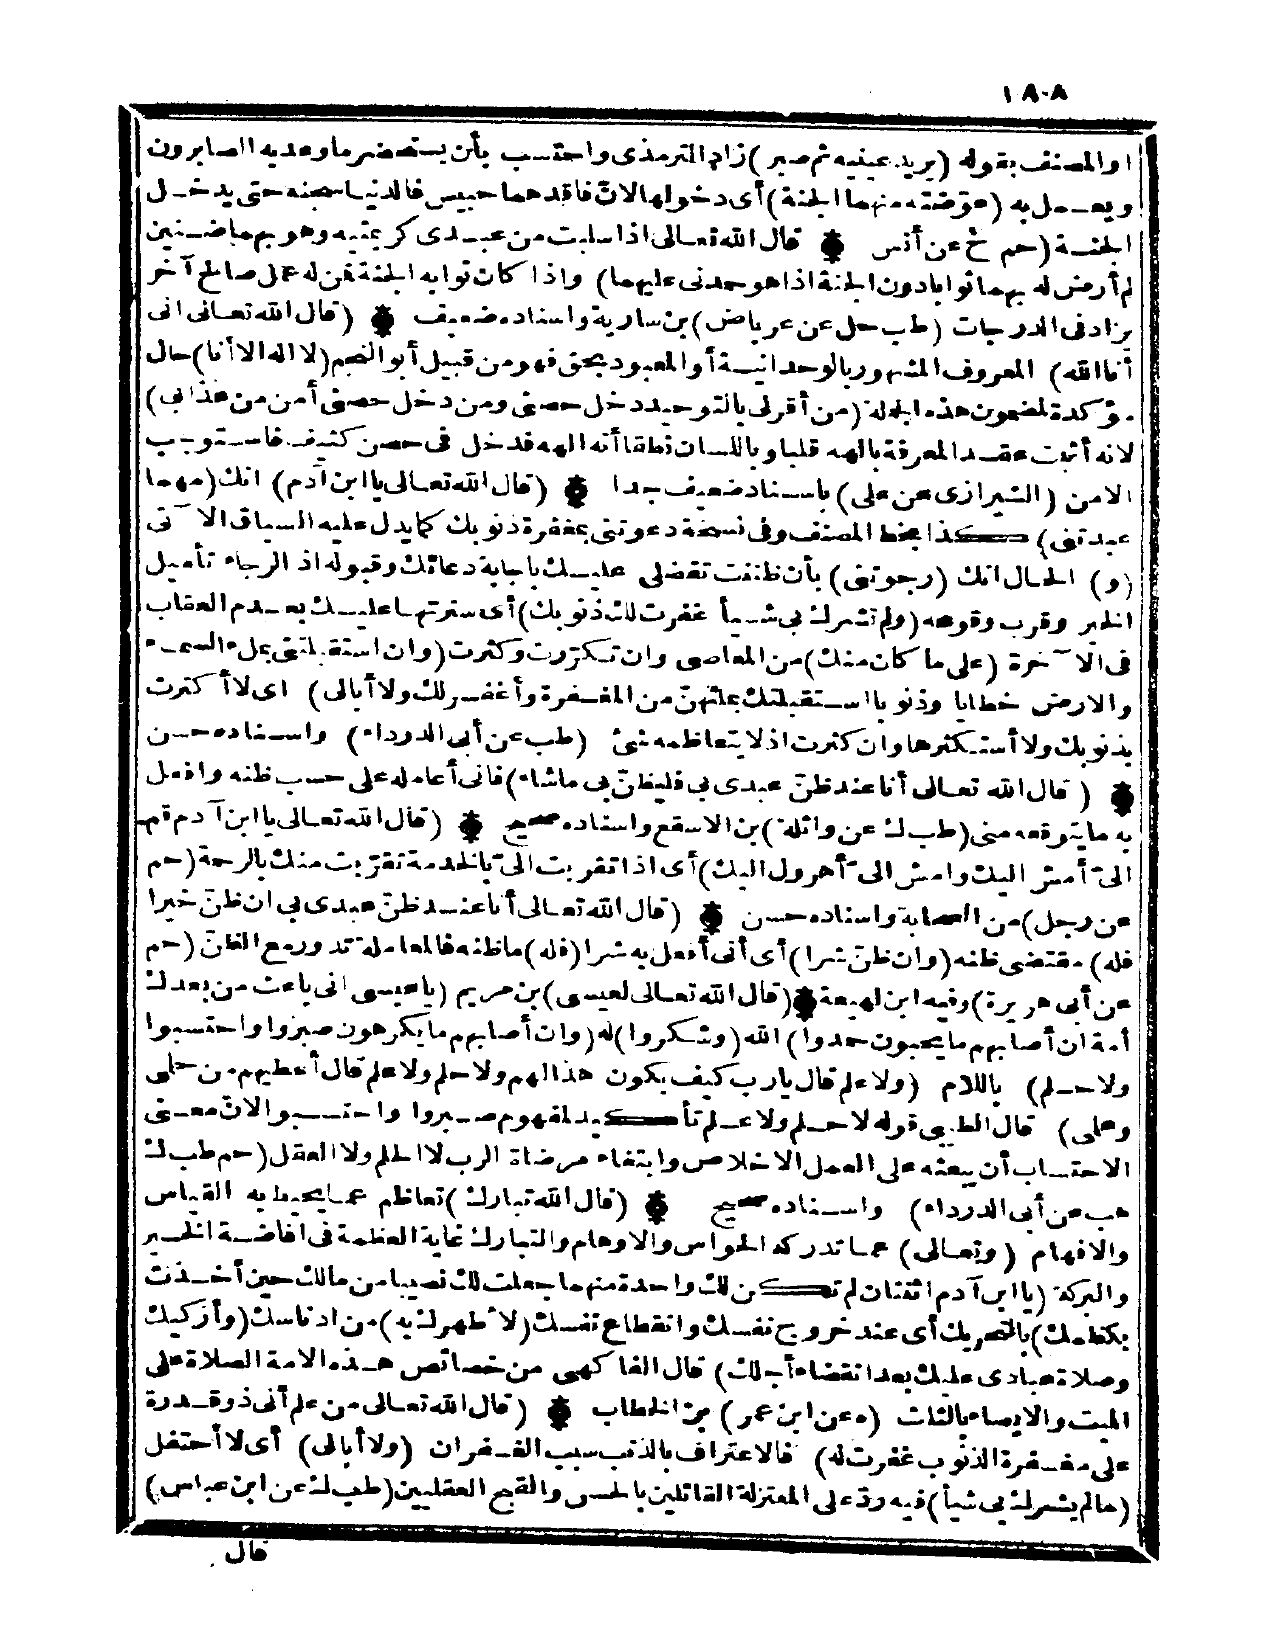 ١٨٠٨
او المصنف بقوله (يريد عينيه ثم صبر) زاد الترمذى واحتسب بأن يستحضر ما وعد به الصابرون
ويعمل به (عوّضته منهما الجنة) أى دخولها لانّ فاقدهما حبيس فالدنيا سجنه حتى يدخل
الجنة (حم خ عن أنس قال الله تعالى اذا سلبت من عبدى كريمتيه وهو بهما ضنين
لم أرض له بهما ثوابا دون الجنة اذا هو حمدنى عليهما) واذا كان ثوابه الجنة فمن له عمل صالح آخر
يزاد فى الدرجات (طب حل عن عرباض) بن سارية واسناده ضعيف (قال الله تعالى انى
أنا الله) المعروف المشهور بالوحدانية أو المعبود بحق فهو من قبيل أبو النجم (لا اله الا أنا) حال
مؤكدة لمضمون هذه الجملة (من أقرلى بالتوحيد دخل حصنى ومن دخل حصنى أمن من عذابى)
لانه أثبت عقد المعرفة بالهه قلبا وباللسان نطقا أنه الهه فدخل فى حصن كثيف فاستوجب
الامن (الشيرازى عن على) باسناد ضعيف جدا (قال الله تعالى يا ابن آدم) انك (مهما
عبدتنى) كذا بخط المصنف وفى نسخة دعوتنى بمغفرة ذنوبك كما يدل عليه السياق الآتى
(و) الحال انك (رجوتنى) بأن ظننت تفضلى عليك باجابة دعائك وقبوله اذ الرجاء تأميل
الخير وقرب وقوعه (ولم تشرك بى شيأ غفرت لك ذنوبك) أى سترتها عليك بعدم العقاب
فى الآخرة (على ما كان منك) من المعاصى وان تكرّرت وكثرت (وان استقبلتنى بملء السماء
والارض خطايا وذنوبا استقبلتك بملئهنّ من المغفرة وأغفر لك ولا أبالى) اى لا أكترث
بذنوبك ولا أستكثرها وان كثرت اذ لا يتعاظمه شئ (طب عن أبى الدرداء) واسناده حسن
(قال الله تعالى أنا عند ظنّ عبدى بى فليظنّ بى ماشاء) فانى أعامله على حسب ظنه وافعل
به ما يتوقعه منى (طب ك عن واثلة) بن الاسقع واسناده صحيح (قال الله تعالى يا ابن آدم قم
الىّ أمش اليك وامش الىّ أهرول اليك) أى اذا تقربت الىّ بالخدمة تقرّبت منك بالرحمة (حم
عن رجل) من الصحابة واسناده حسن (قال الله تعالى أنا عند ظنّ عبدى بى ان ظنّ خيرا
فله) مقتضى ظنه (وان ظنّ شرا) أى أنى أفعل به شرا (فله) ماظنه فالمعاملة تدور مع الظنّ (حم
عن أبى هريرة) وفيه ابن لهيعة (قال الله تعالى لعيسى) بن مريم (يا عيسى انى باعث من بعدك
أمة ان أصابهم ما يحبون حمدوا) الله (وشكروا) له (وان أصابهم ما يكرهون صبروا واحتسبوا
ولا حلم) باللام (ولا علم قال يارب كيف يكون هذا لهم ولا حلم ولا علم قال أعطيهم من حلمى
وعلمى) قال الطيبى قوله لا حلم ولا علم تأكيد لمفهوم صبروا واحتسبوا لانّ معنى
الاحتساب أن يبعثه على العمل الاخلاص وابتغاء مرضاة الرب لا الحلم ولا العقل (حم طب ك
هب عن أبى الدرداء) واسناده صحيح (قال الله تبارك) تعاظم عما يحيط به القياس
والافهام (وتعالى) عما تدركه الحواس والاوهام والتبارك غاية العظمة فى افاضة الخير
والبركة (يا ابن آدم اثنتان لم تكن لك واحدة منهما جعلت لك نصيبا من مالك حين أخذت
بكظمك) بالتحريك أى عند خروج نفسك وانقطاع نفسك (لا طهرك به) من ادناسك (وأزكيك
وصلاة عبادى عليك بعد انقضاء أجلك) قال الفاكهى من خصائص هذه الامة الصلاة على
الميت والايصاء بالثلث (ه عن ابن عمر) بن الخطاب (قال الله تعالى من علم أنى ذو قدرة
على مغفرة الذنوب غفرت له) فالاعتراف بالذنب سبب الغفران (ولا أبالى) أى لا أحتفل
(مالم يشرك بى شيأ) فيه ردّ على المعتزلة القائلين بالحسن والقبح العقليين (طب ك عن ابن عباس)
قال